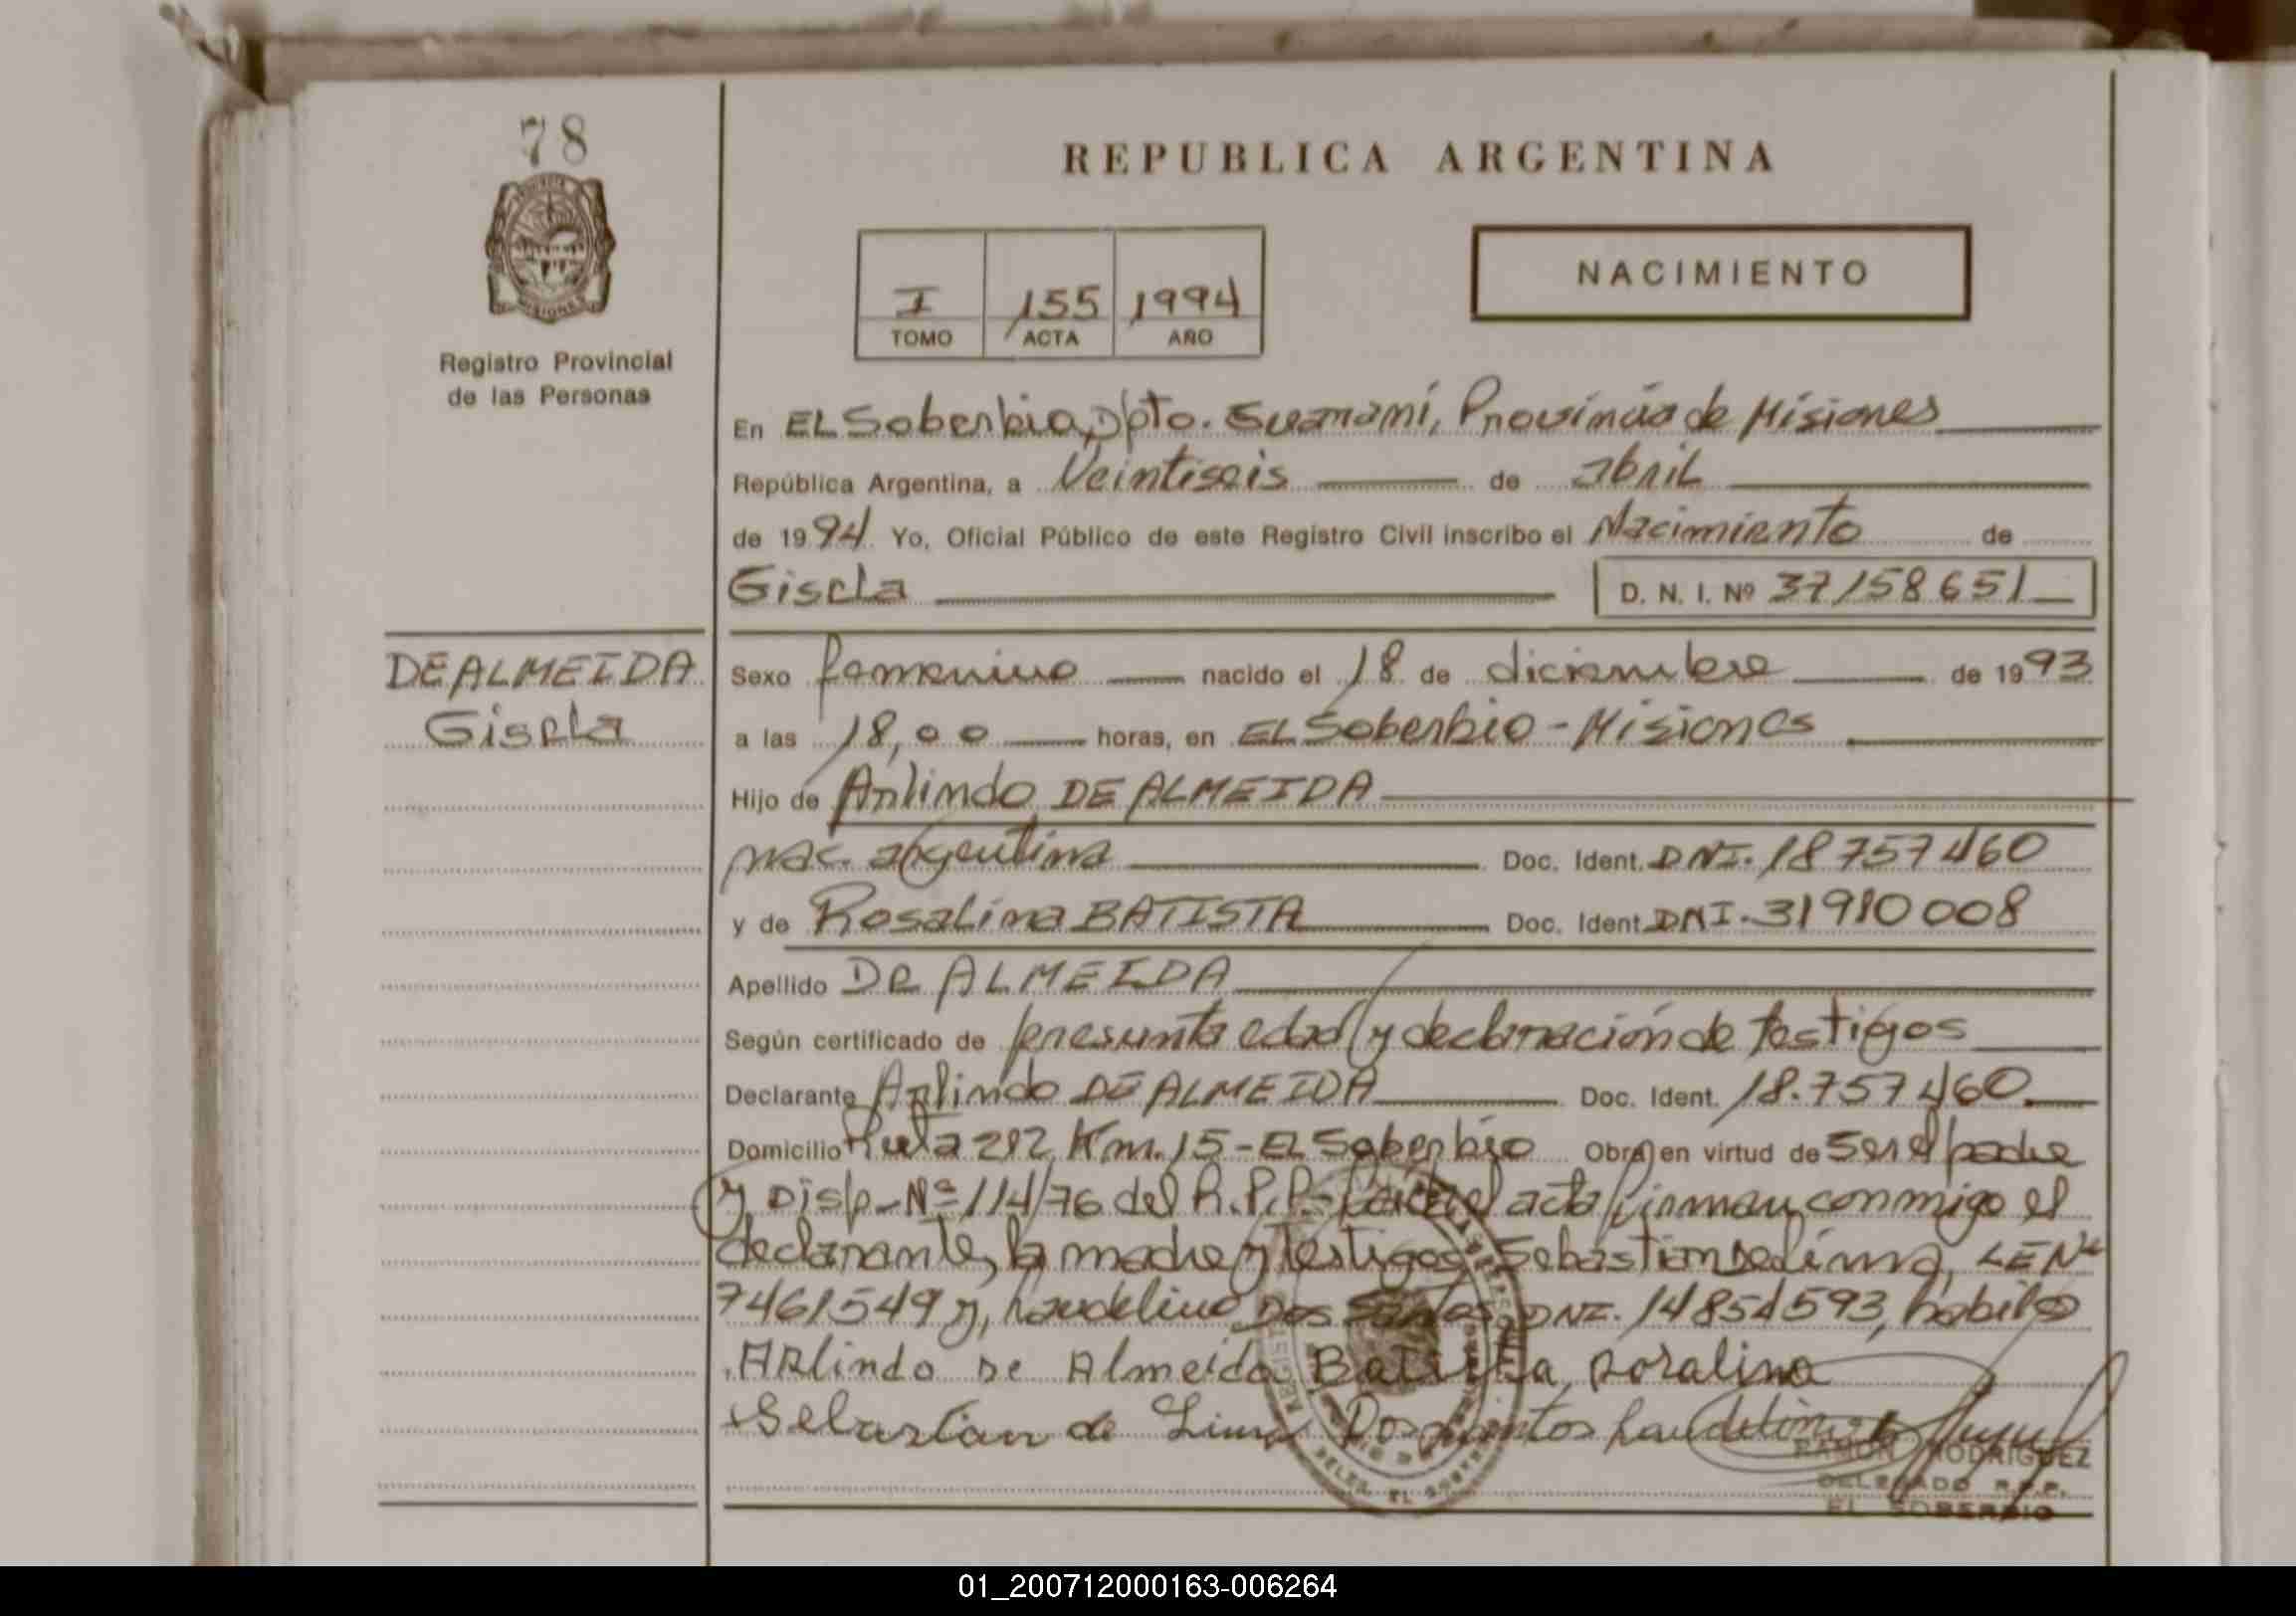 78
REPUBLICA ARGENTINA
I 155 1994
TOMO ACTA AÑO
NACIMIENTO
Registro Provincial
de las Personas
En EL Soberbio, Dpto. Guaraní, Provincia de Misiones
República Argentina, a Veintiseis de abril
de 1994 Yo, Oficial Público de este Registro Civil inscribo el Nacimiento de
Gisela D. N. I. Nº 37158651
DE ALMEIDA
Gisela
Sexo femenino nacido el 18 de diciembre de 1993
a las 18,00 horas, en EL Soberbio - Misiones
Hijo de Arlindo DE ALMEIDA
nac. argentina Doc. Ident. DNI. 18757460
y de Rosalina BATISTA Doc. Ident. DNI. 31980008
Apellido De ALMEIDA
Según certificado de presunta edad y declaración de testigos
Declarante Arlindo DE ALMEIDA Doc. Ident. 18.757460
Domicilio Ruta 212 Km. 15 - EL Soberbio Obra en virtud de ser el padre
y Disp. Nº 114/76 del R.P.P. acta firman conmigo el
declarante, la madre y testigos Sebastian de Lima, LE Nº
7461549 y, Laudelino Dos Santos, DNI. 14854593, habiles
Arlindo De Almeida Batista Rosalina
Sebastian de Lima Dos Santos Laudelino
RAMON RODRIGUEZ
DELEGADO R.P.P.
EL SOBERBIO
01_200712000163-006264